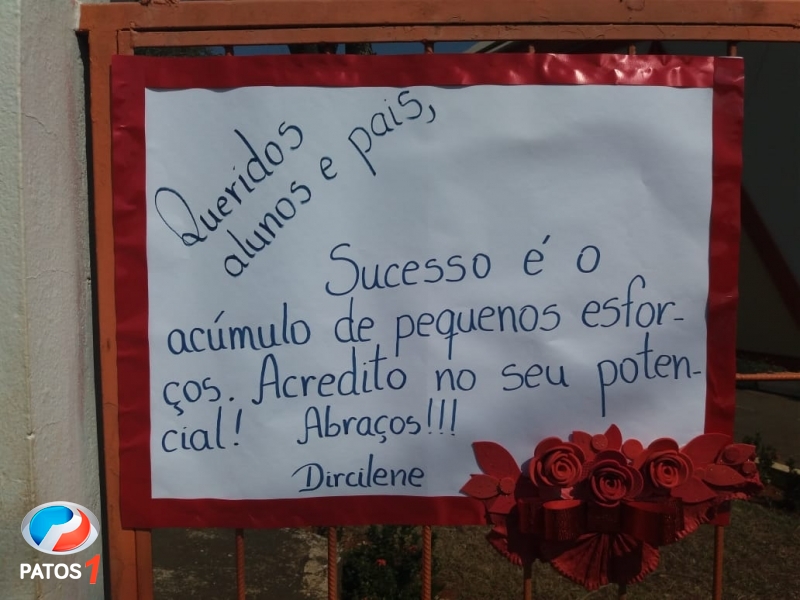 Queridos
alunos e pais,
Sucesso é o
acúmulo de pequenos esfor-
ços. Acredito no seu poten-
cial! Abraços!!!
Dircilene
PATOS 1